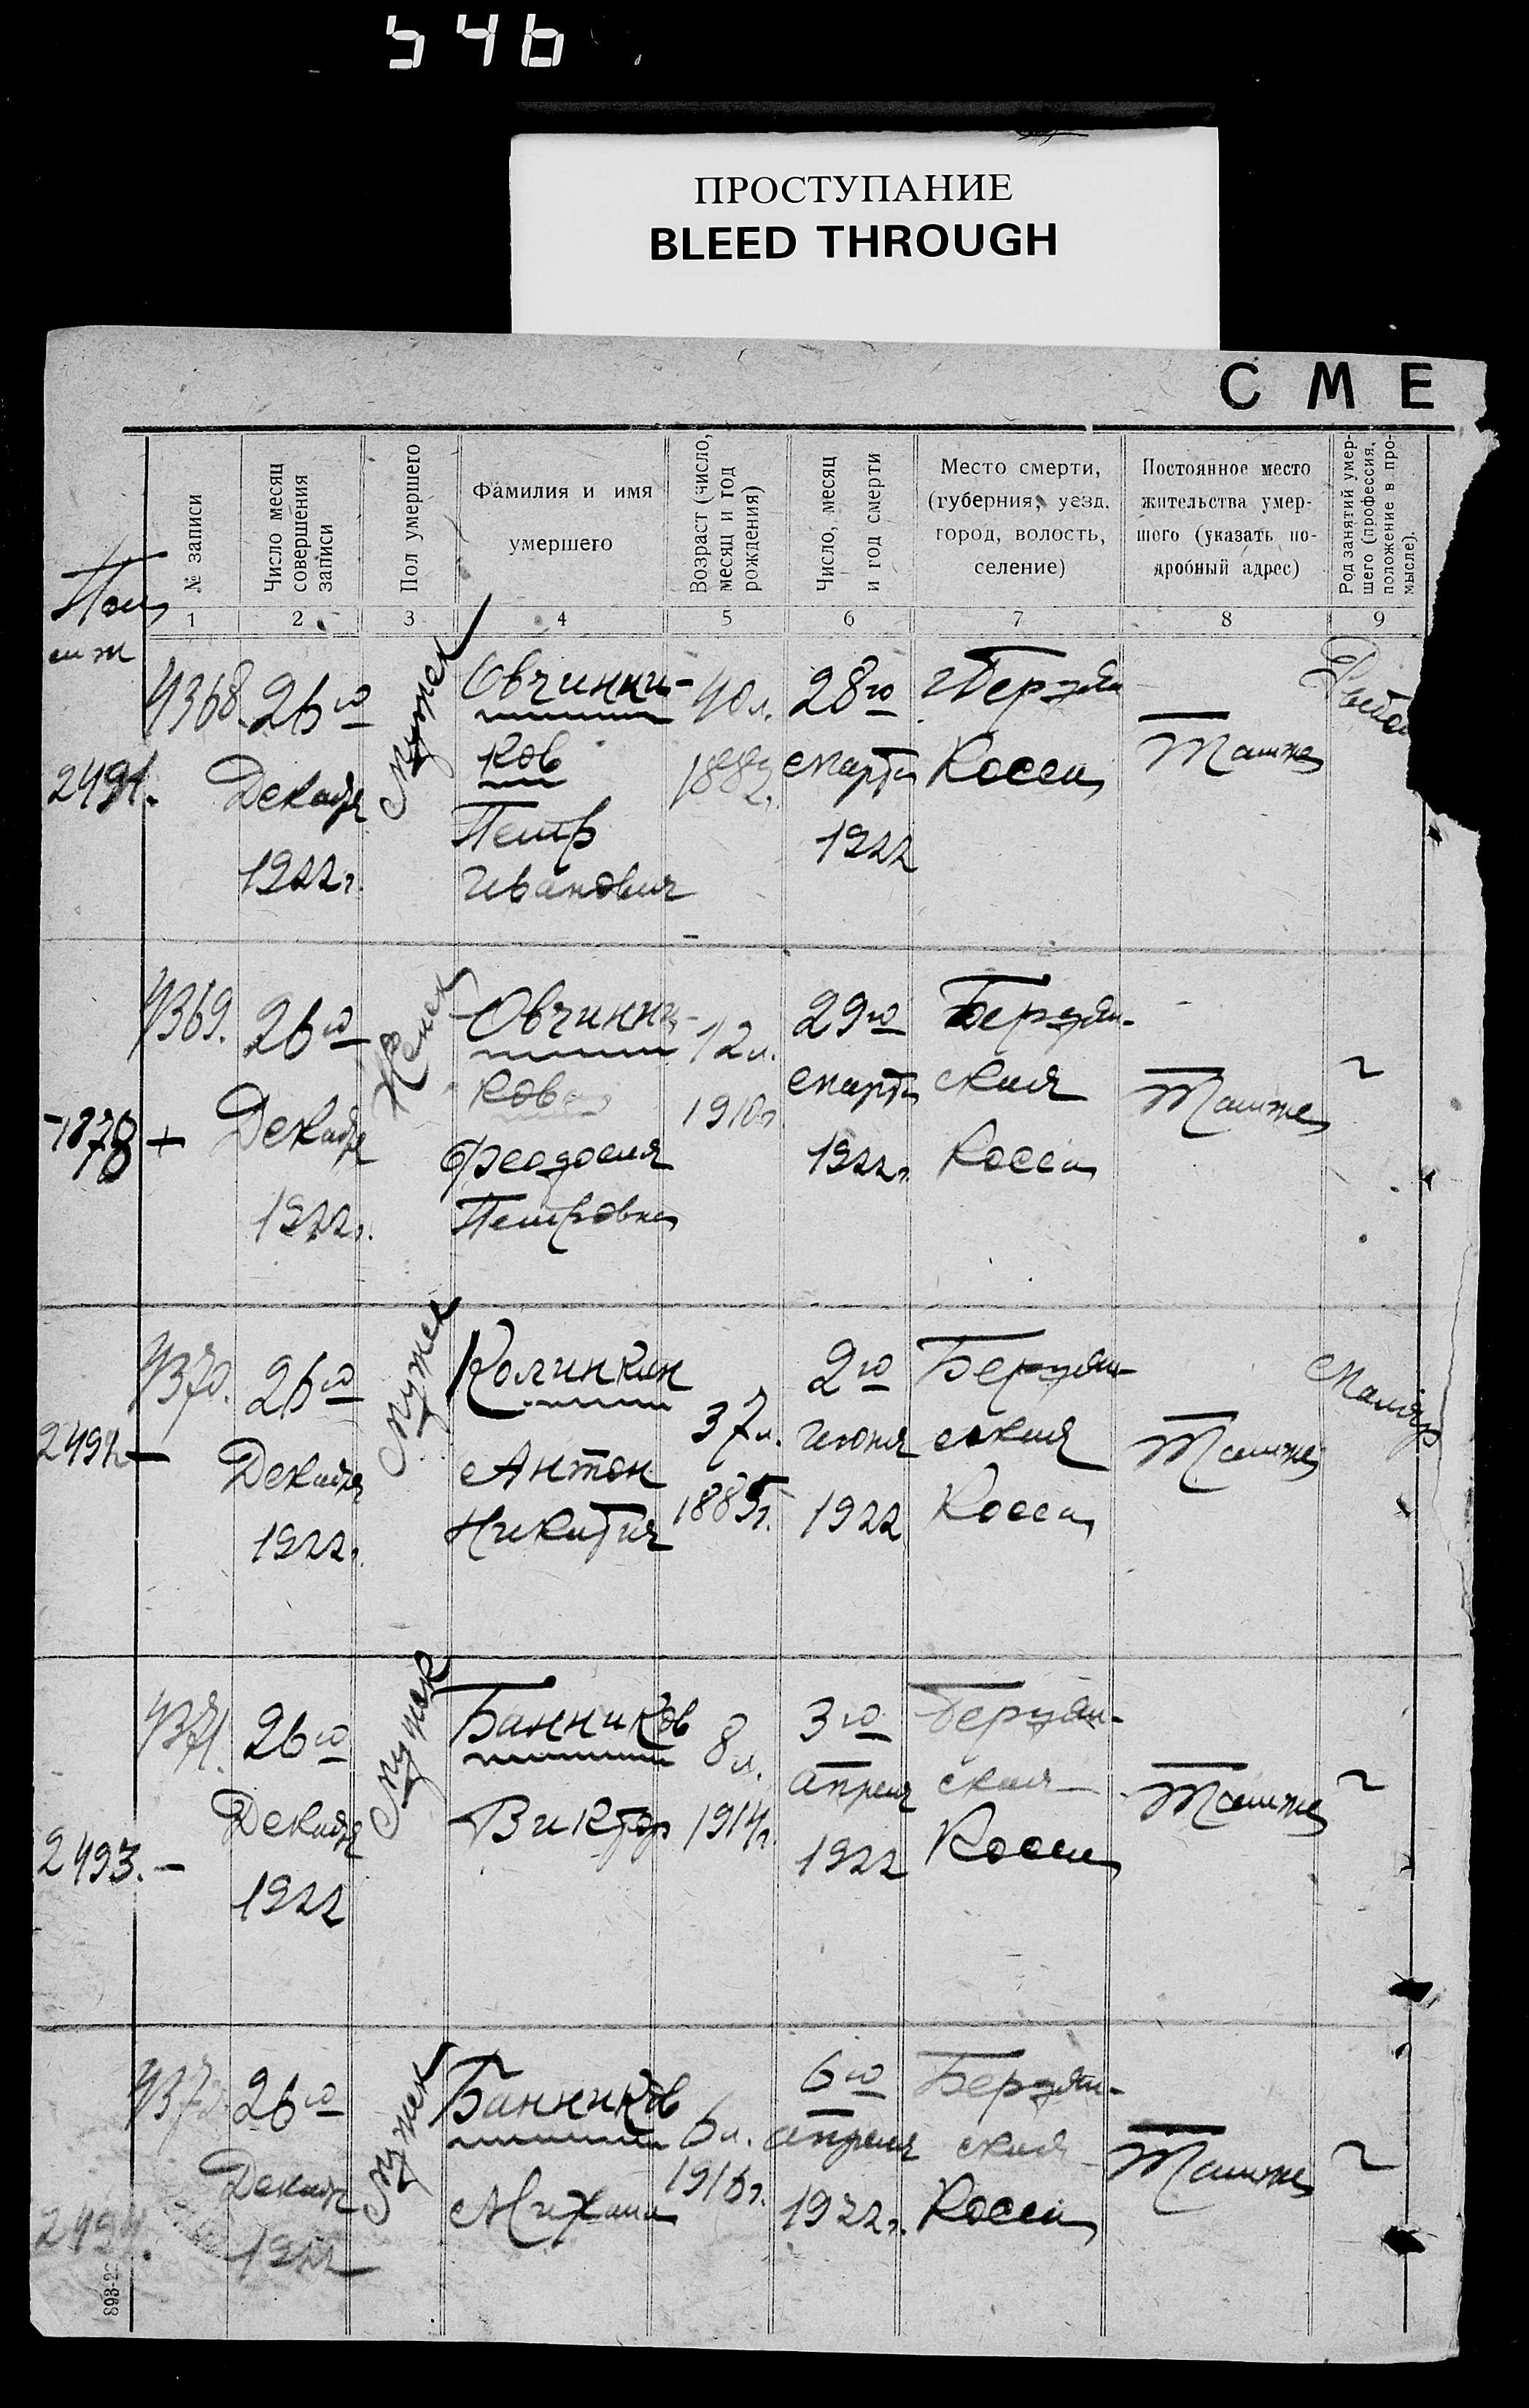 546
ПРОСТУПАНИЕ
BLEED THROUGH
С М Е
№ записи
Число месяц
совершения
записи
Пол умершего
Фамилия и имя
умершего
Возраст (число,
месяц и год
рождения)
Число, месяц
и год смерти
Место смерти,
(губерния, уезд,
город, волость,
селение)
Постоянное место
жительства умер-
шего (указать по-
дробный адрес)
Род занятий умер-
шего (профессия,
положение в про-
мысле).
1 2 3 4 5 6 7 8 9
4368. 26го
Декабр
1922г.
2491.
Мужск
Овчинни-
ков
Петр
Иванович
40 л.
1882
28го
марта
1922
г Бердян
Росси
Там же
4369. 26го
Декабр
1922г.
-1878 +
Женск
Овчинни-
кова
Феодосия
Петровна
12 л.
1910г
29го
марта
1922г.
Бердян-
ская
Росси
Там же
~
4370. 26го
Декабря
1922г.
2492 –
Мужск
Колинкин
Антон
Никитич
37 л.
1885г.
2го
июня
1922
Бердян-
ская
Росси
Там же
Маляр
4371. 26го
Декабр
1922
2493. –
Мужск
Банников
Виктор
8 л.
1914г.
3го
апреля
1922
Бердян-
ская
Росси
Там же
~
437 26го
Декабр
1922
2494.
Мужск
Банников
Михаил
6 л.
1916г.
6го
апреля
1922г.
Бердян-
ская
Росси
Там же
~
893-22